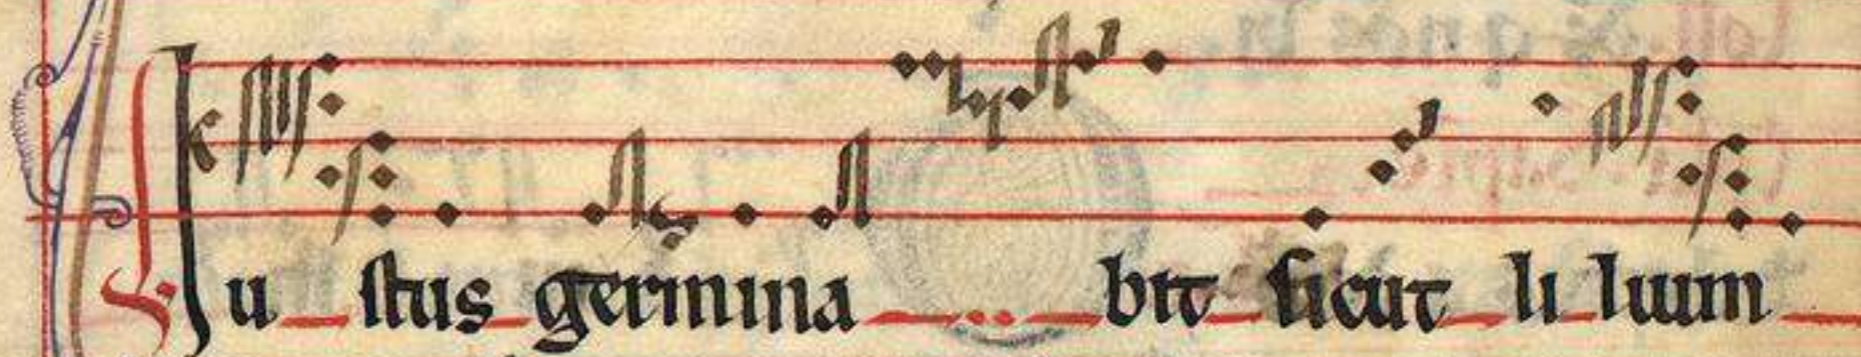 Iustus germinabit sicut lilium